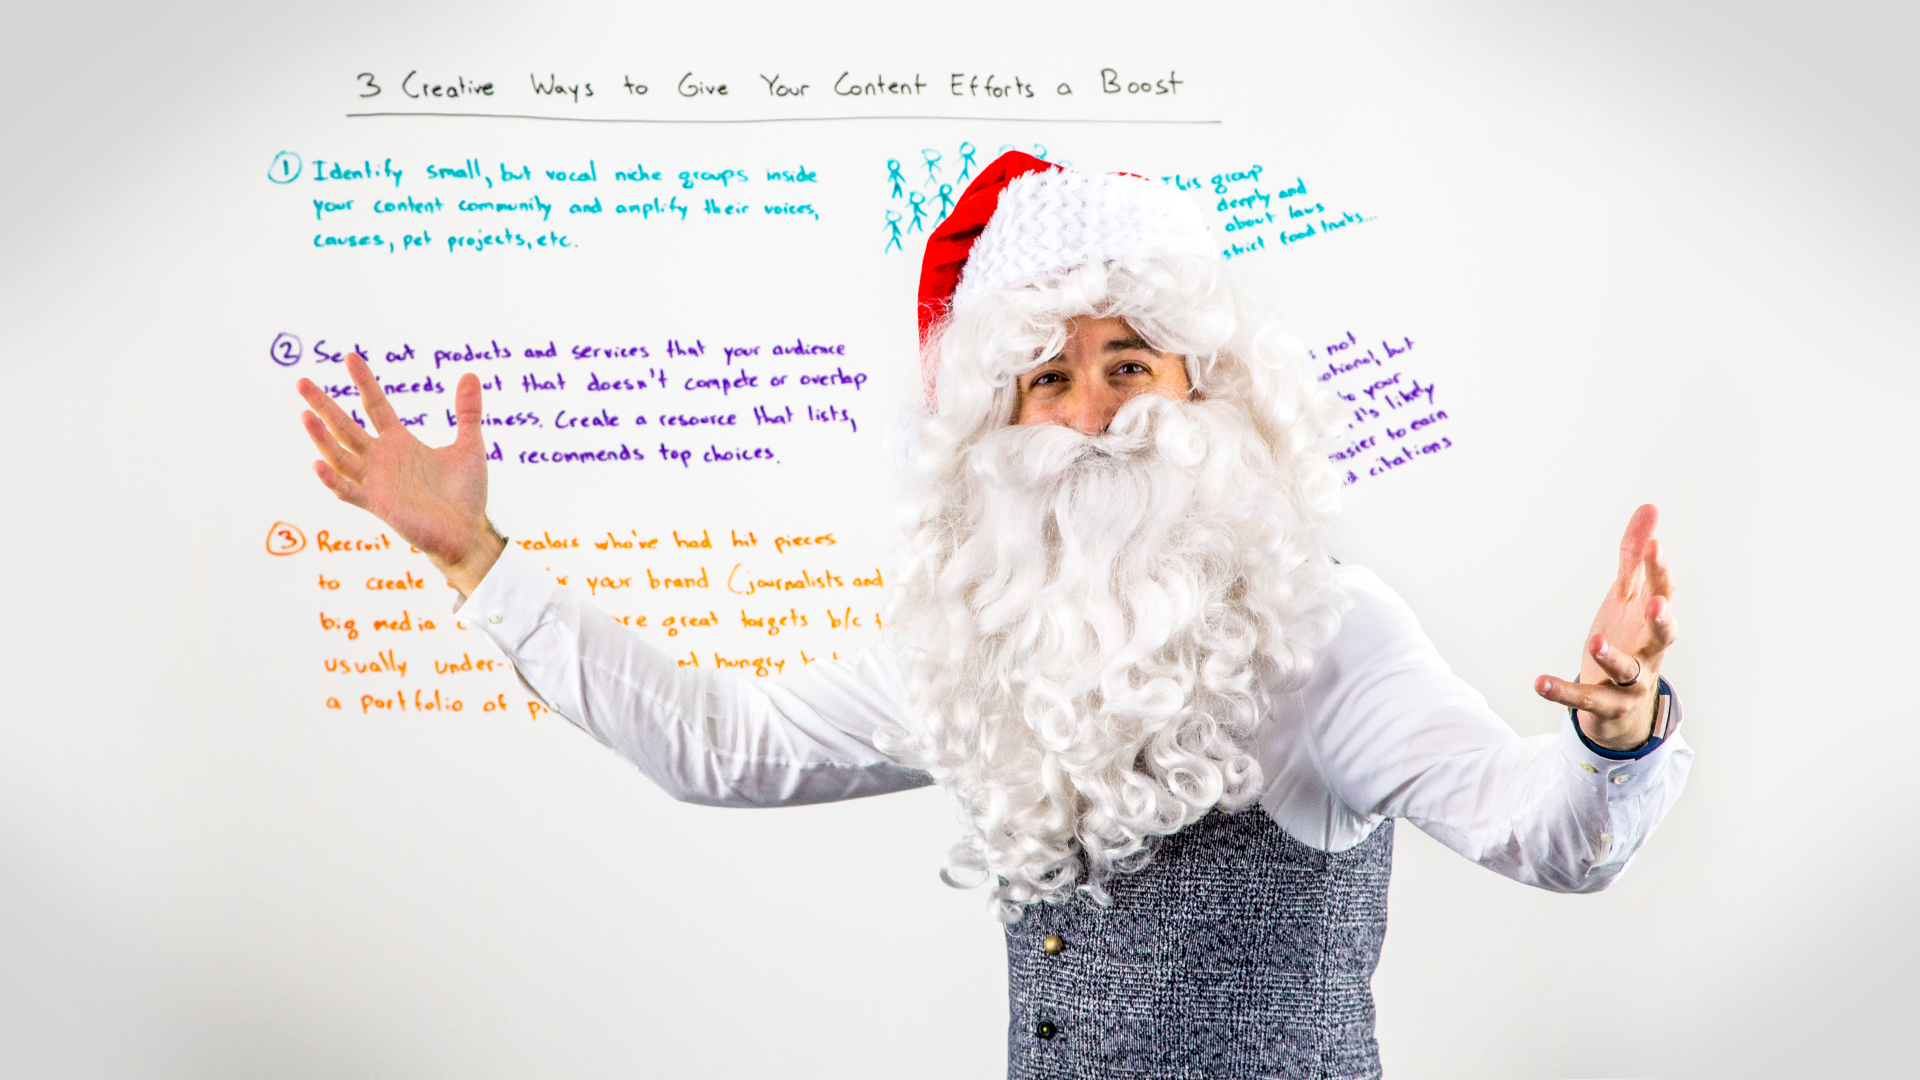 3 Creative Ways to Give Your Content Efforts a Boost
1 Identify small, but vocal niche groups inside
your content community and amplify their voices,
causes, pet projects, etc.
This group
deeply and
about laws
food trucks...
2 Seek out products and services that your audience
needs that doesn't compete or overlap
business. Create a resource that lists,
recommends top choices.
not
but
to your
it's likely
easier to earn
citations
3 Recruit who've had hit pieces
to create your brand (journalists and
big media are great targets b/c
usually under- hungry
a portfolio of